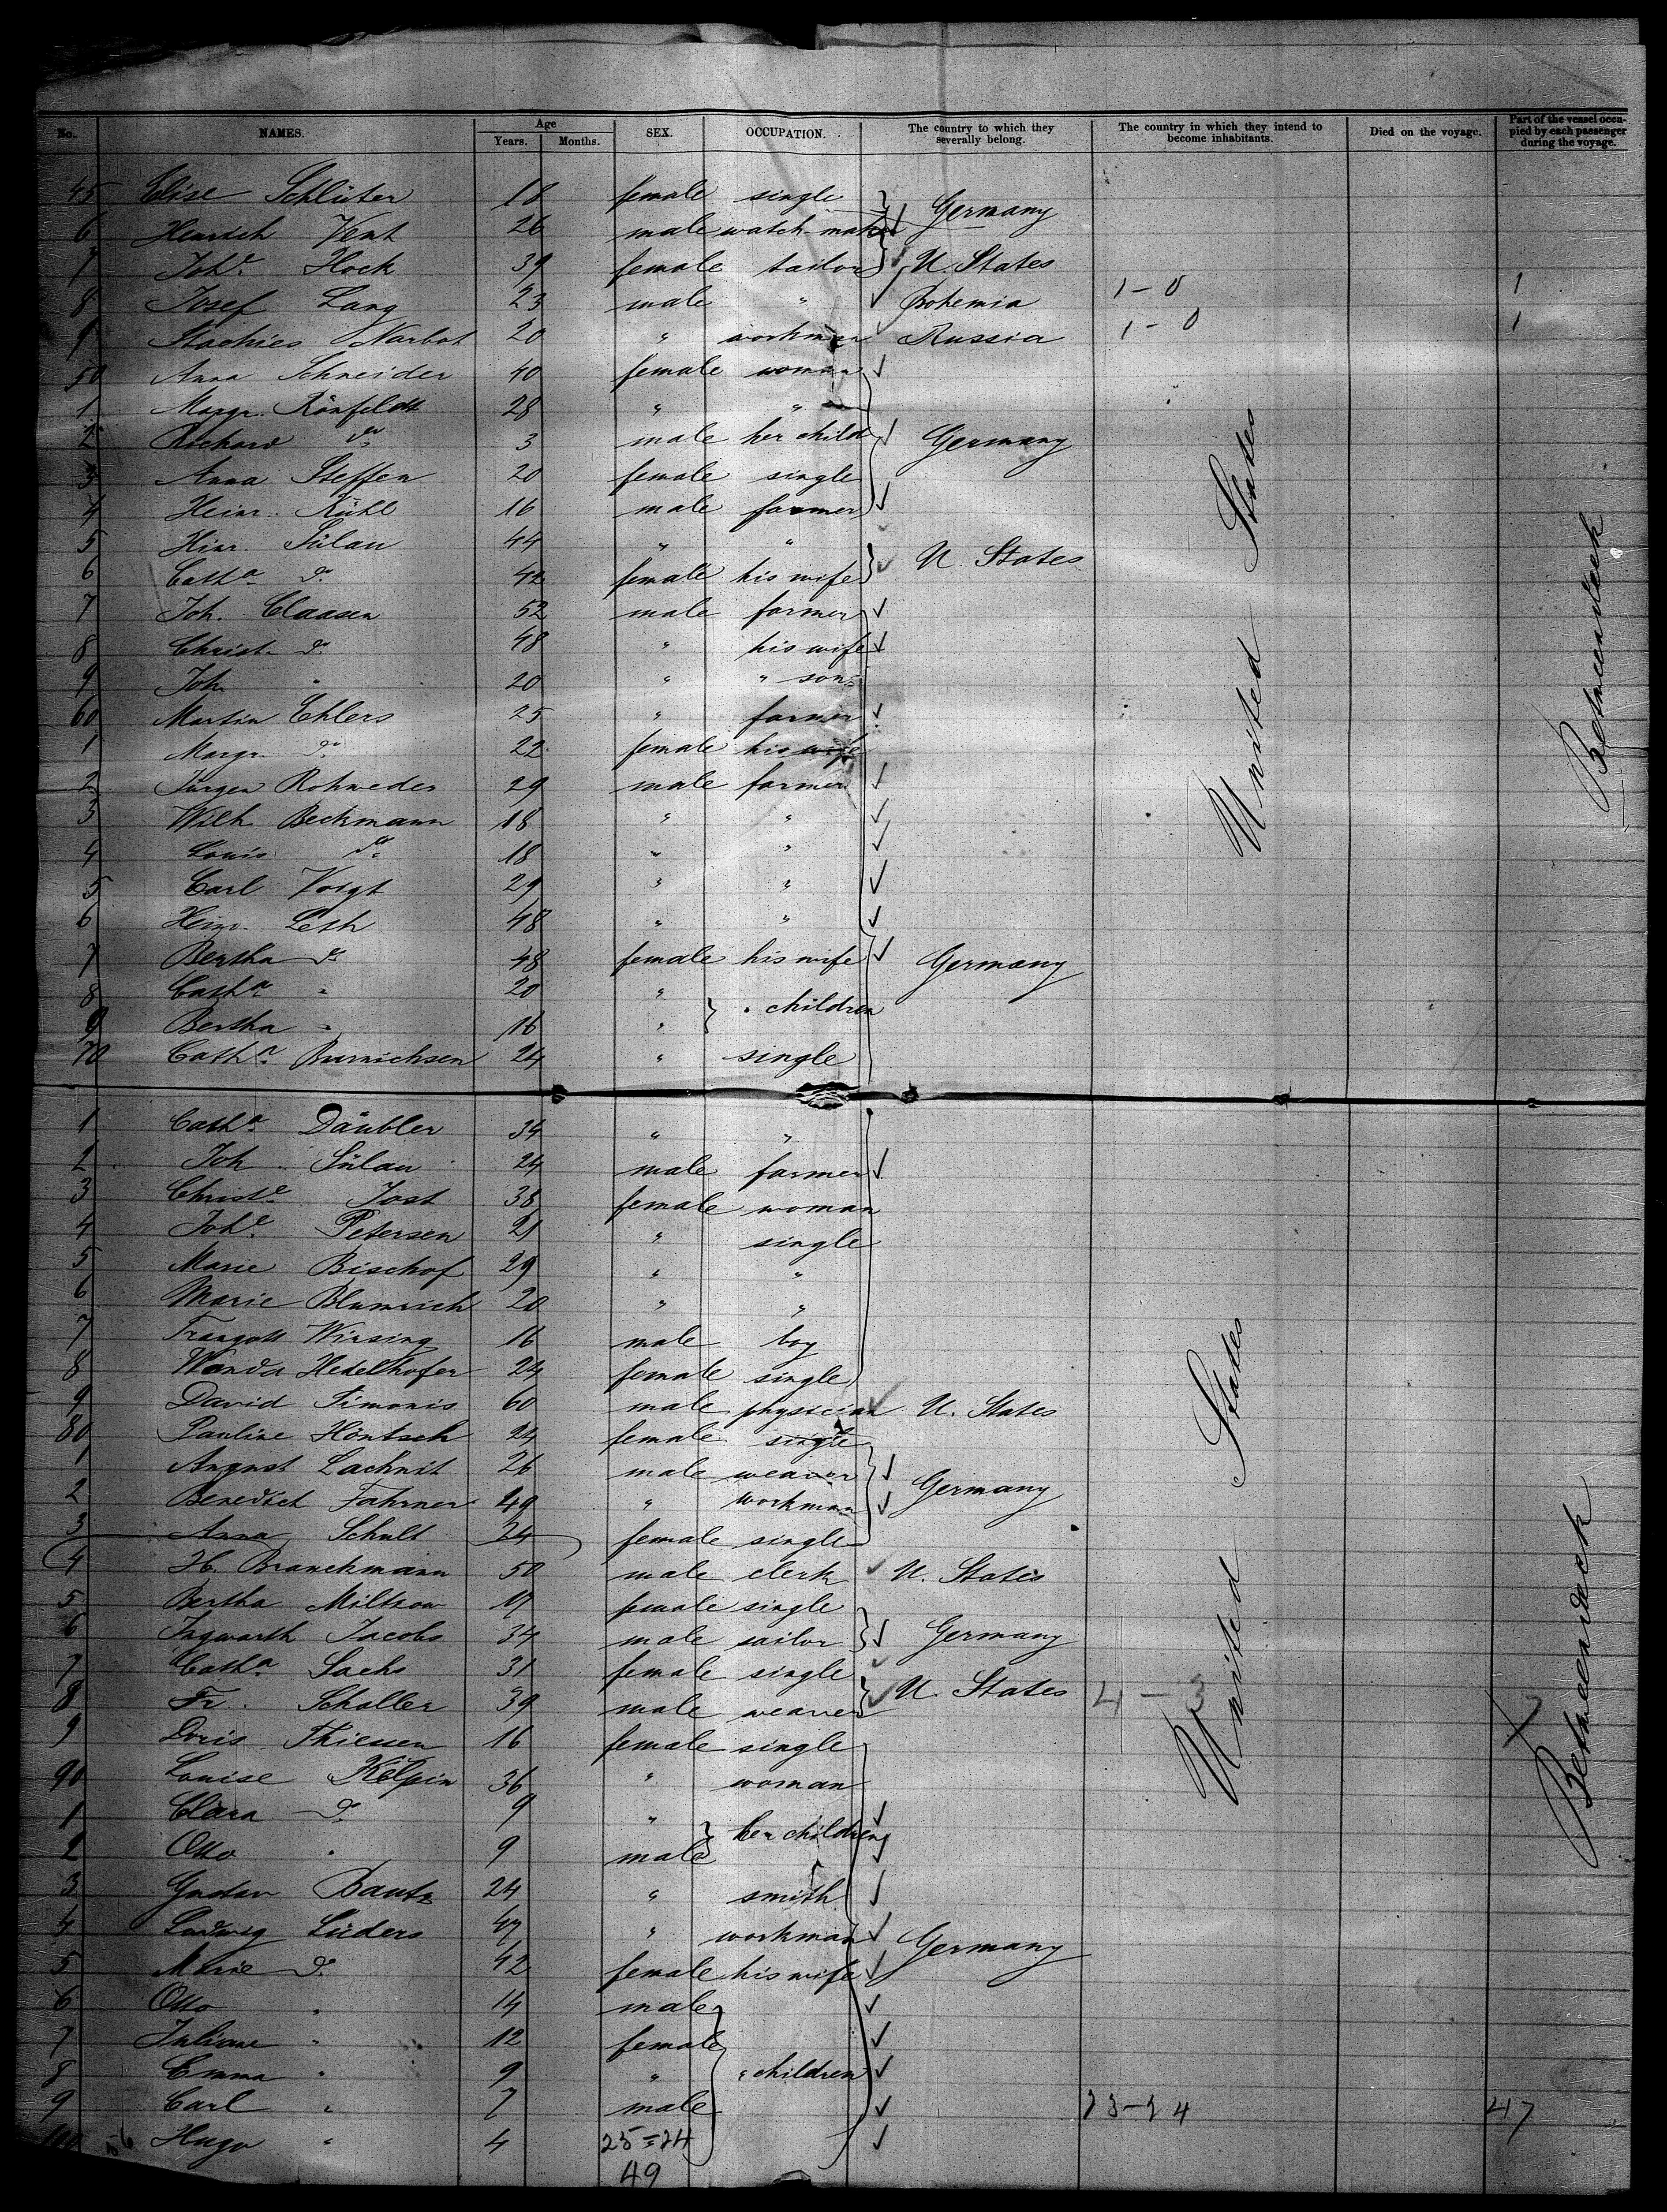 No. NAMES. Age Years. Months. SEX. OCCUPATION. The country to which they severally belong. The country in which they intend to become inhabitants. Died on the voyage. Part of the vessel occupied by each passenger during the voyage.
45 Elise Schlüter 18 female single Germany
6 Henrich Vent 26 male watch-maker
7 Joh<sup>e</sup> Hock 39 female tailor U. States
8 Josef Lang 23 male " Bohemia 1-0 1
9 Narbot 20 " workman Russia 1-0 1
50 Anna Schneider 40 female woman
1 Margr. Rönfeldt 28 " "
2 Richard do 3 male her child Germany
3 Anna Steffen 20 female single
4 Heinr. Kühl 16 male farmer
5 Hinr. Sülau 44 " "
6 Cath<sup>a</sup> do 42 female his wife U. States
7 Joh. Claasen 52 male farmer
8 Christ. do 48 " his wife
9 Joh. " 20 " " son
60 Martin Ehlers 25 " farmer
1 Margr. do 22 female his wife
2 Jürgen Rohweder 29 male farmer
3 Wilh. Beckmann 18 " "
4 Louis do 18 " "
5 Carl Voigt 29 " "
6 Heinr. Leth 48 " "
7 Bertha do 48 female his wife Germany
8 Cath<sup>a</sup> " 20 " " children
9 Bertha " 16 "
70 Cath<sup>a</sup> 24 " single
United States
Betweendeck
1 Cath<sup>a</sup> Däubler 34 " "
2 Joh. Sülau 24 male farmer
3 Christ<sup>e</sup> Jost 38 female woman
4 Joh<sup>e</sup> Petersen 21 " single
5 Marie Bischof 29 " "
6 Marie Blumrich 20 " "
7 Traugott Wirsing 16 male boy
8 Wanda Hedelhofer 24 female single
9 David Simonis 60 male physician U. States
80 Pauline Höntsch 24 female single
1 August Lachnit 26 male weaver Germany
2 Benedict Fahrner 49 " workman
3 Anna Schult 24 female single
4 H. Branckmann 50 male clerk U. States
5 Bertha Miltzow 19 female single
6 Ingwarth Jacobs 34 male sailor Germany
7 Cath<sup>a</sup> Sachs 31 female single
8 Fr. Schaller 39 male weaver U. States 4-3 7
9 Doris Thiessen 16 female single
90 Louise Kölpin 36 " woman
1 Clara do 9 " her children
2 Otto " 9 male
3 Gustav Bautz 24 " smith
4 Ludwig Lüders 47 " workman Germany
5 Marie do 42 female his wife
6 Otto " 14 male
7 Juliane " 12 female
8 Emma " 9 " " children
9 Carl " 7 male 23-24 47
Hugo " 4 25-24
49
United States
Betweendeck